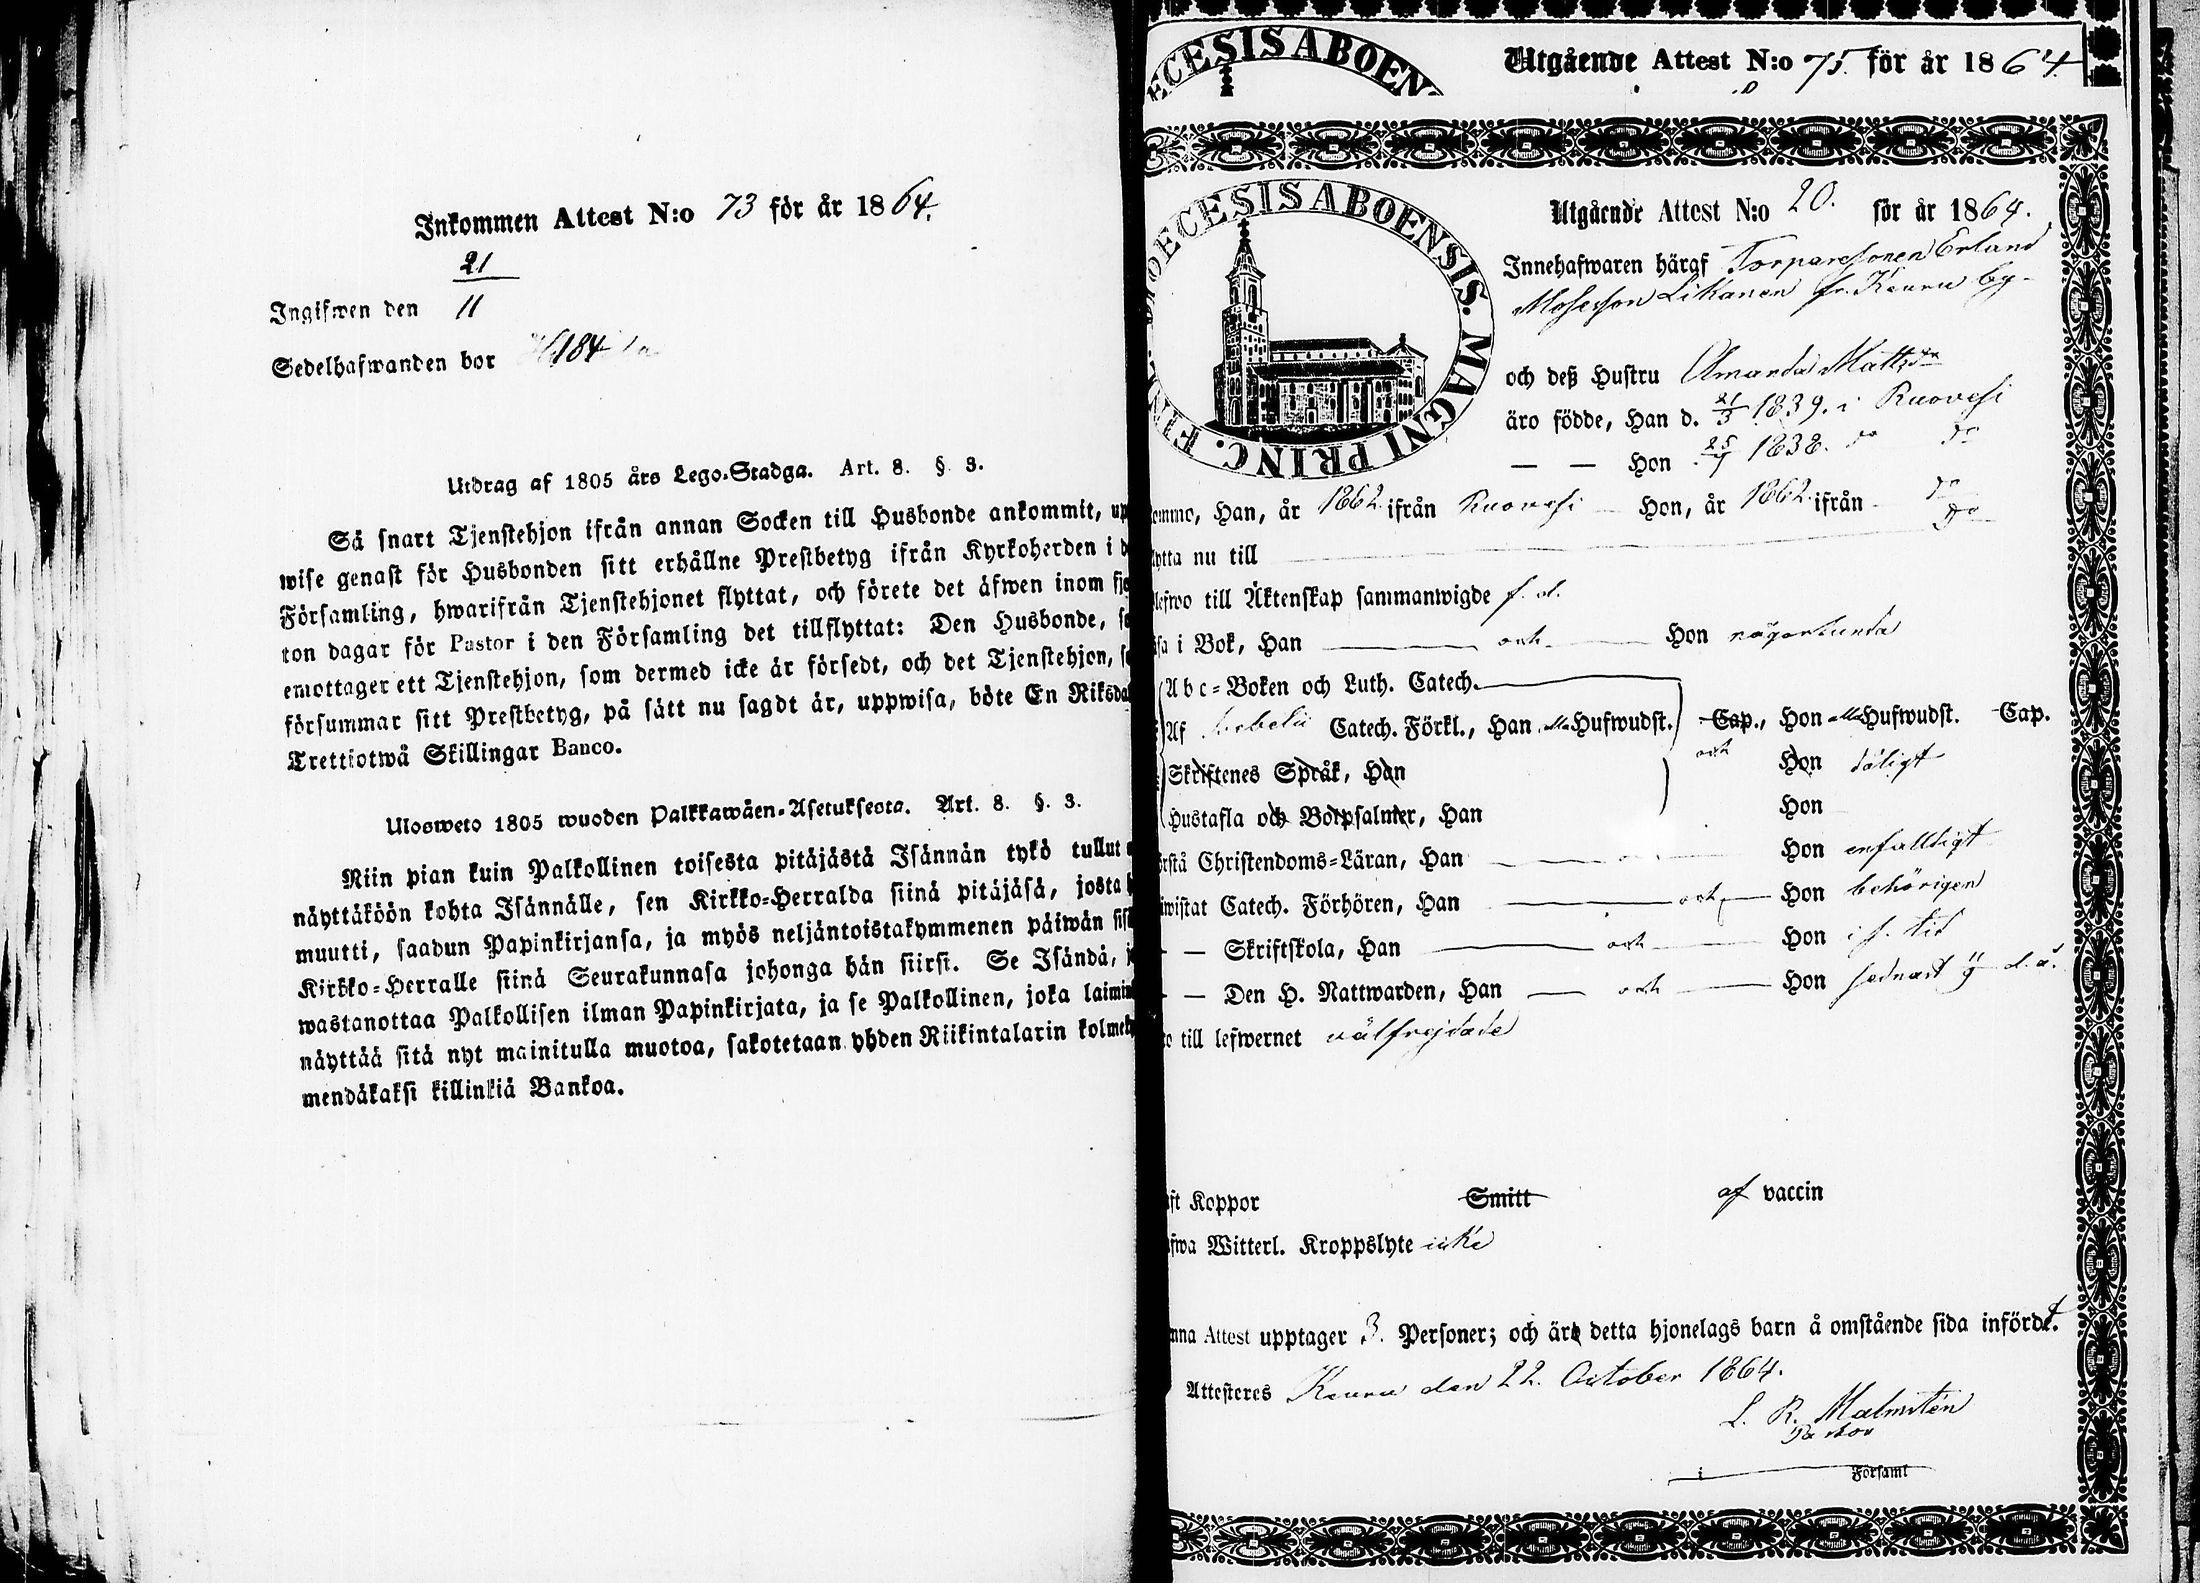 Inkommen Attest N:o 73 för år 1864.
21
Ingifwen den 11
Sedelhafwanden bor 184
Utdrag af 1805 års Lego-Stadga. Art. 8. §. 3.
Så snart Tjenstehjon ifrån annan Socken till Husbonde ankommit, up
wise genast för Husbonden sitt erhållne Prestbetyg ifrån Kyrkoherden i d
Församling, hwarifrån Tjenstehjonet flyttat, och förete det äfwen inom fjo
ton dagar för Pastor i den Församling det tillflyttat: Den Husbonde, s
emottager ett Tjenstehjon, som dermed icke är försedt, och det Tjenstehjon, s
försummar sitt Prestbetyg, på sätt nu sagdt är, uppwisa, böte En Riksda
Trettiotwå Skillingar Banco.
Ulosweto 1805 wuoden Palkkawäen-Asetuksesta. Art. 8. §. 3.
Niin pian kuin Palkollinen toisesta pitäjästä Isännän tykö tullut
näyttäköön kohta Isännälle, sen Kirkko-Herralda siinä pitäjäsä, josta h
muutti, saadun Papinkirjansa, ja myös neljäntoistakymmenen päiwän sis
Kirkko-Herralle siinä Seurakunnasa johonga hän siirsi. Se Isändä, j
wastanottaa Palkollisen ilman Papinkirjata, ja se Palkollinen, joka laimin
näyttää sitä nyt mainitulla muotoa, sakotetaan yhden Riikintalarin kolmek
mendäkaksi killinkiä Bankoa.
ECESIS ABOEN
Utgående Attest N:o 75. för år 1864.
DIOECESIS ABOENSIS. MAGNI PRINC. FINL
Utgående Attest N:o 20. för år 1864.
Innehafwaren häraf Torparesonen Erland
Mosesson Likanen fr. Keuru by
och deß Hustru Amanda Mattsdr
äro födde, Han d. 21/3 1839. i Ruovesi
— — Hon 25/7 1838. do do
ommo, Han, år 1862 ifrån Ruovesi Hon, år 1862 ifrån do
lytta nu till do
lefwo till Äktenskap sammanwigde f. d.
äsa i Bok, Han — och — Hon någorlunda
Abc-Boken och Luth. Catech.
Af Catech. Förkl., Han alla Hufwudst. Cap., Hon alla Hufwudst. Cap.
Skriftenes Språk, Han och Hon dåligt
Hustafla och Botpsalmer, Han Hon
örstå Christendoms-Läran, Han Hon enfalldigt
iwistat Catech. Förhören, Han — och — Hon behörigen
— — Skriftskola, Han — och — Hon i s. tid
— — Den H. Nattwarden, Han — och — Hon sednast d. å.
o till lefwernet välfrejdade
aft Koppor Smitt af vaccin
afwa Witterl. Kroppslyte icke
nna Attest upptager 3. Personer; och äro detta hjonelags barn å omstående sida infördt.
Attesteres Keuru den 22. October 1864.
L. R. Malmstén
Pastor
i Församl